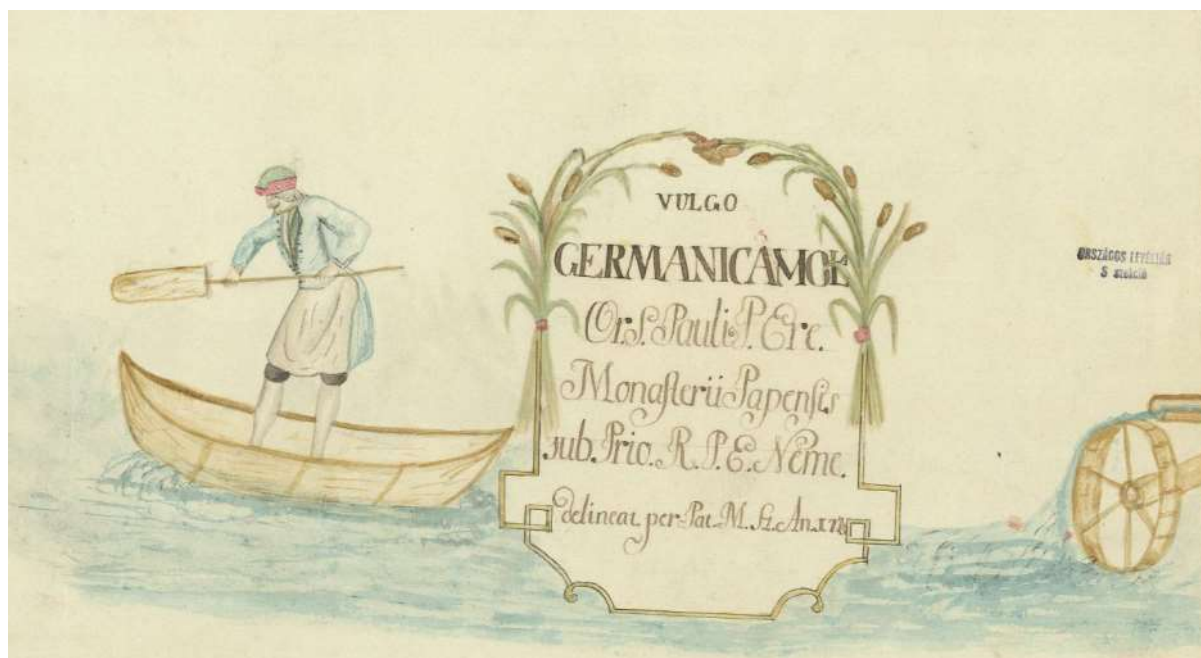 VULGO
GERMANICAMOE
Or. S. Pauli P. Ere.
Monasterii Papensis
sub. Prio. R. P. E. Neme.
delineat per Pat. M. St. An.
ORSZÁGOS LEVÉLTÁR
S szekció